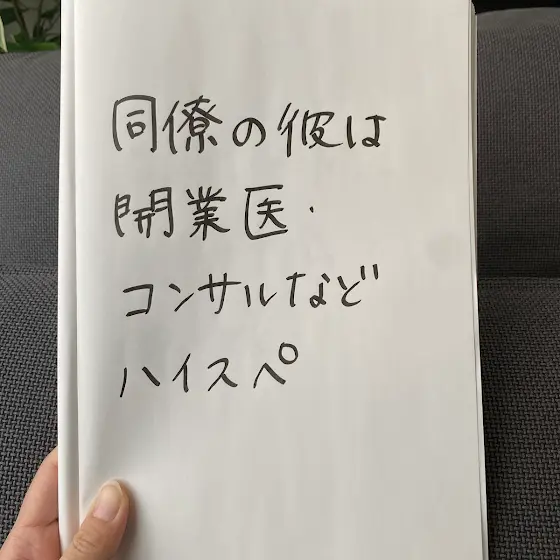 同僚の彼は
開業医・
コンサルなど
ハイスペ